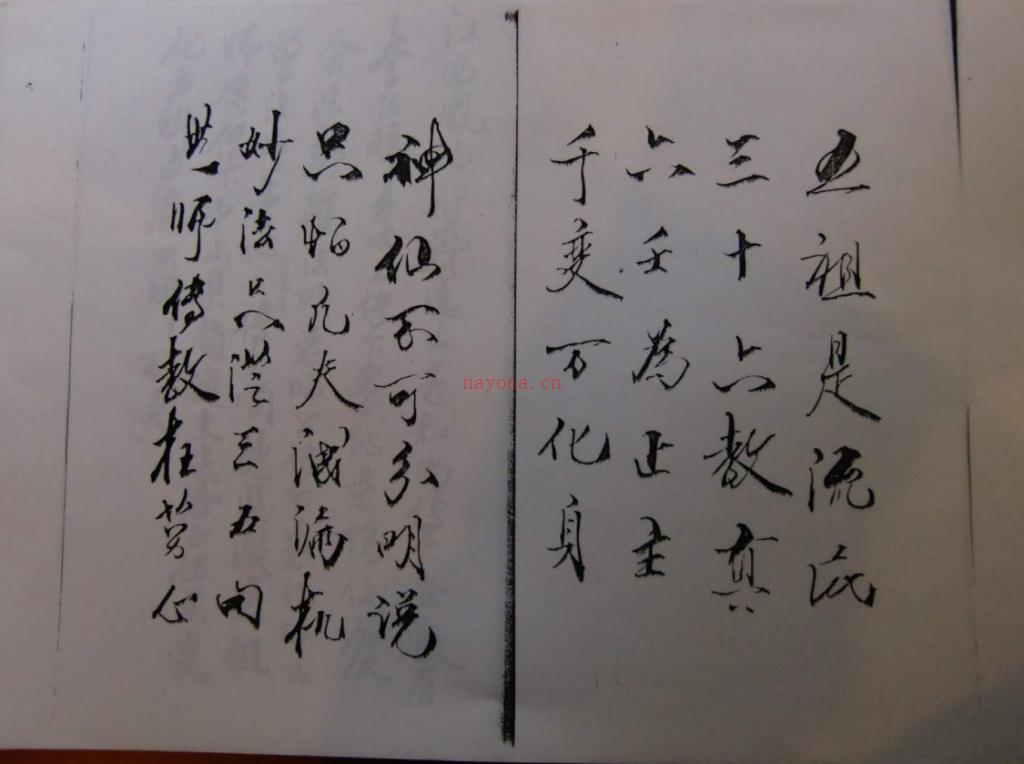 五祖是流氏
三十六教真
六壬為正主
千变万化身
神仙不可分明说
只怕凡夫泄漏机
妙法只澄三五句
无师传教枉劳心
nayona.cn